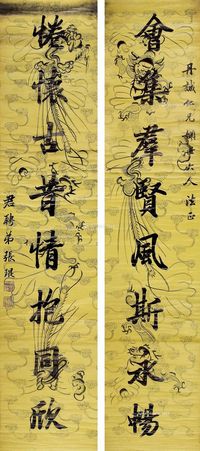 丹誠仁兄棣才大人法正
會集群賢風斯永暢
惓懷古昔情抱同欣
君聘弟張琨